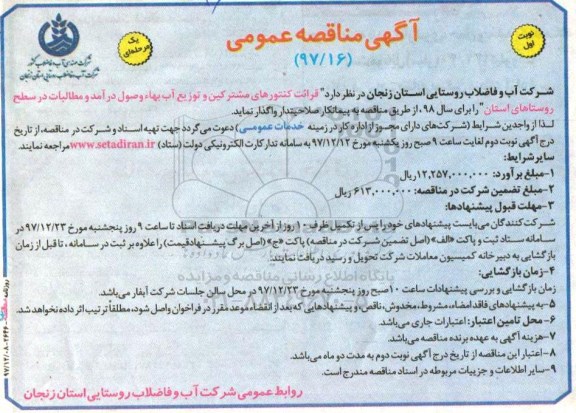 آگهی مناقصه عمومی
(۹۷/۱۶)
نوبت اول
یک مرحله‌ای
شرکت آب و فاضلاب روستایی استان زنجان
شرکت آب و فاضلاب روستایی استان زنجان در نظر دارد "قرائت کنتورهای مشترکین و توزیع آب بهاء وصول درآمد و مطالبات در سطح
روستاهای استان" را برای سال ۹۸، از طریق مناقصه به پیمانکار صلاحیتدار واگذار نماید.
لذا از واجدین شرایط (شرکت‌های دارای مجوز از اداره کار در زمینه خدمات عمومی) دعوت می‌گردد جهت تهیه اسناد و شرکت در مناقصه، از تاریخ
درج آگهی نوبت دوم لغایت ساعت ۹ صبح روز یکشنبه مورخ ۹۷/۱۲/۱۲ به سامانه تدارکات الکترونیکی دولت (ستاد) www.setadiran.ir مراجعه نمایند.
سایر شرایط:
۱-مبلغ برآورد: ۱۲,۲۵۷,۰۰۰,۰۰۰ ریال
۲-مبلغ تضمین شرکت در مناقصه: ۶۱۳,۰۰۰,۰۰۰ ریال
۳-مهلت قبول پیشنهادها:
شرکت کنندگان می‌بایست پیشنهادهای خود را پس از تکمیل ظرف ۱۰ روز از آخرین مهلت دریافت اسناد تا ساعت ۹ روز پنجشنبه مورخ ۹۷/۱۲/۲۳ در
سامانه ستاد ثبت و پاکت «الف» (اصل تضمین شرکت در مناقصه) پاکت «ج» (اصل برگ پیشنهاد قیمت) را علاوه بر ثبت در سامانه، تا قبل از زمان
بازگشایی به دبیرخانه کمیسیون معاملات شرکت تحویل و رسید دریافت نمایند.
۴-زمان بازگشایی:
زمان بازگشایی و بررسی پیشنهادات ساعت ۱۰ صبح روز پنجشنبه مورخ ۹۷/۱۲/۲۳ در محل سالن جلسات شرکت آبفار می‌باشد.
۵-به پیشنهادهای فاقد امضاء، مشروط، مخدوش، ناقص و پیشنهادهایی که بعد از انقضاء موعد مقرر در فراخوان واصل شود، مطلقاً ترتیب اثر داده نخواهد شد.
۶-محل تامین اعتبار: اعتبارات جاری می‌باشد.
۷-هزینه آگهی به عهده برنده مناقصه می‌باشد.
۸-اعتبار این مناقصه از تاریخ درج آگهی نوبت دوم به مدت دو ماه می‌باشد.
۹-سایر اطلاعات و جزییات مربوطه در اسناد مناقصه مندرج است.
روابط عمومی شرکت آب و فاضلاب روستایی استان زنجان
پایگاه اطلاع رسانی مناقصه و مزایده